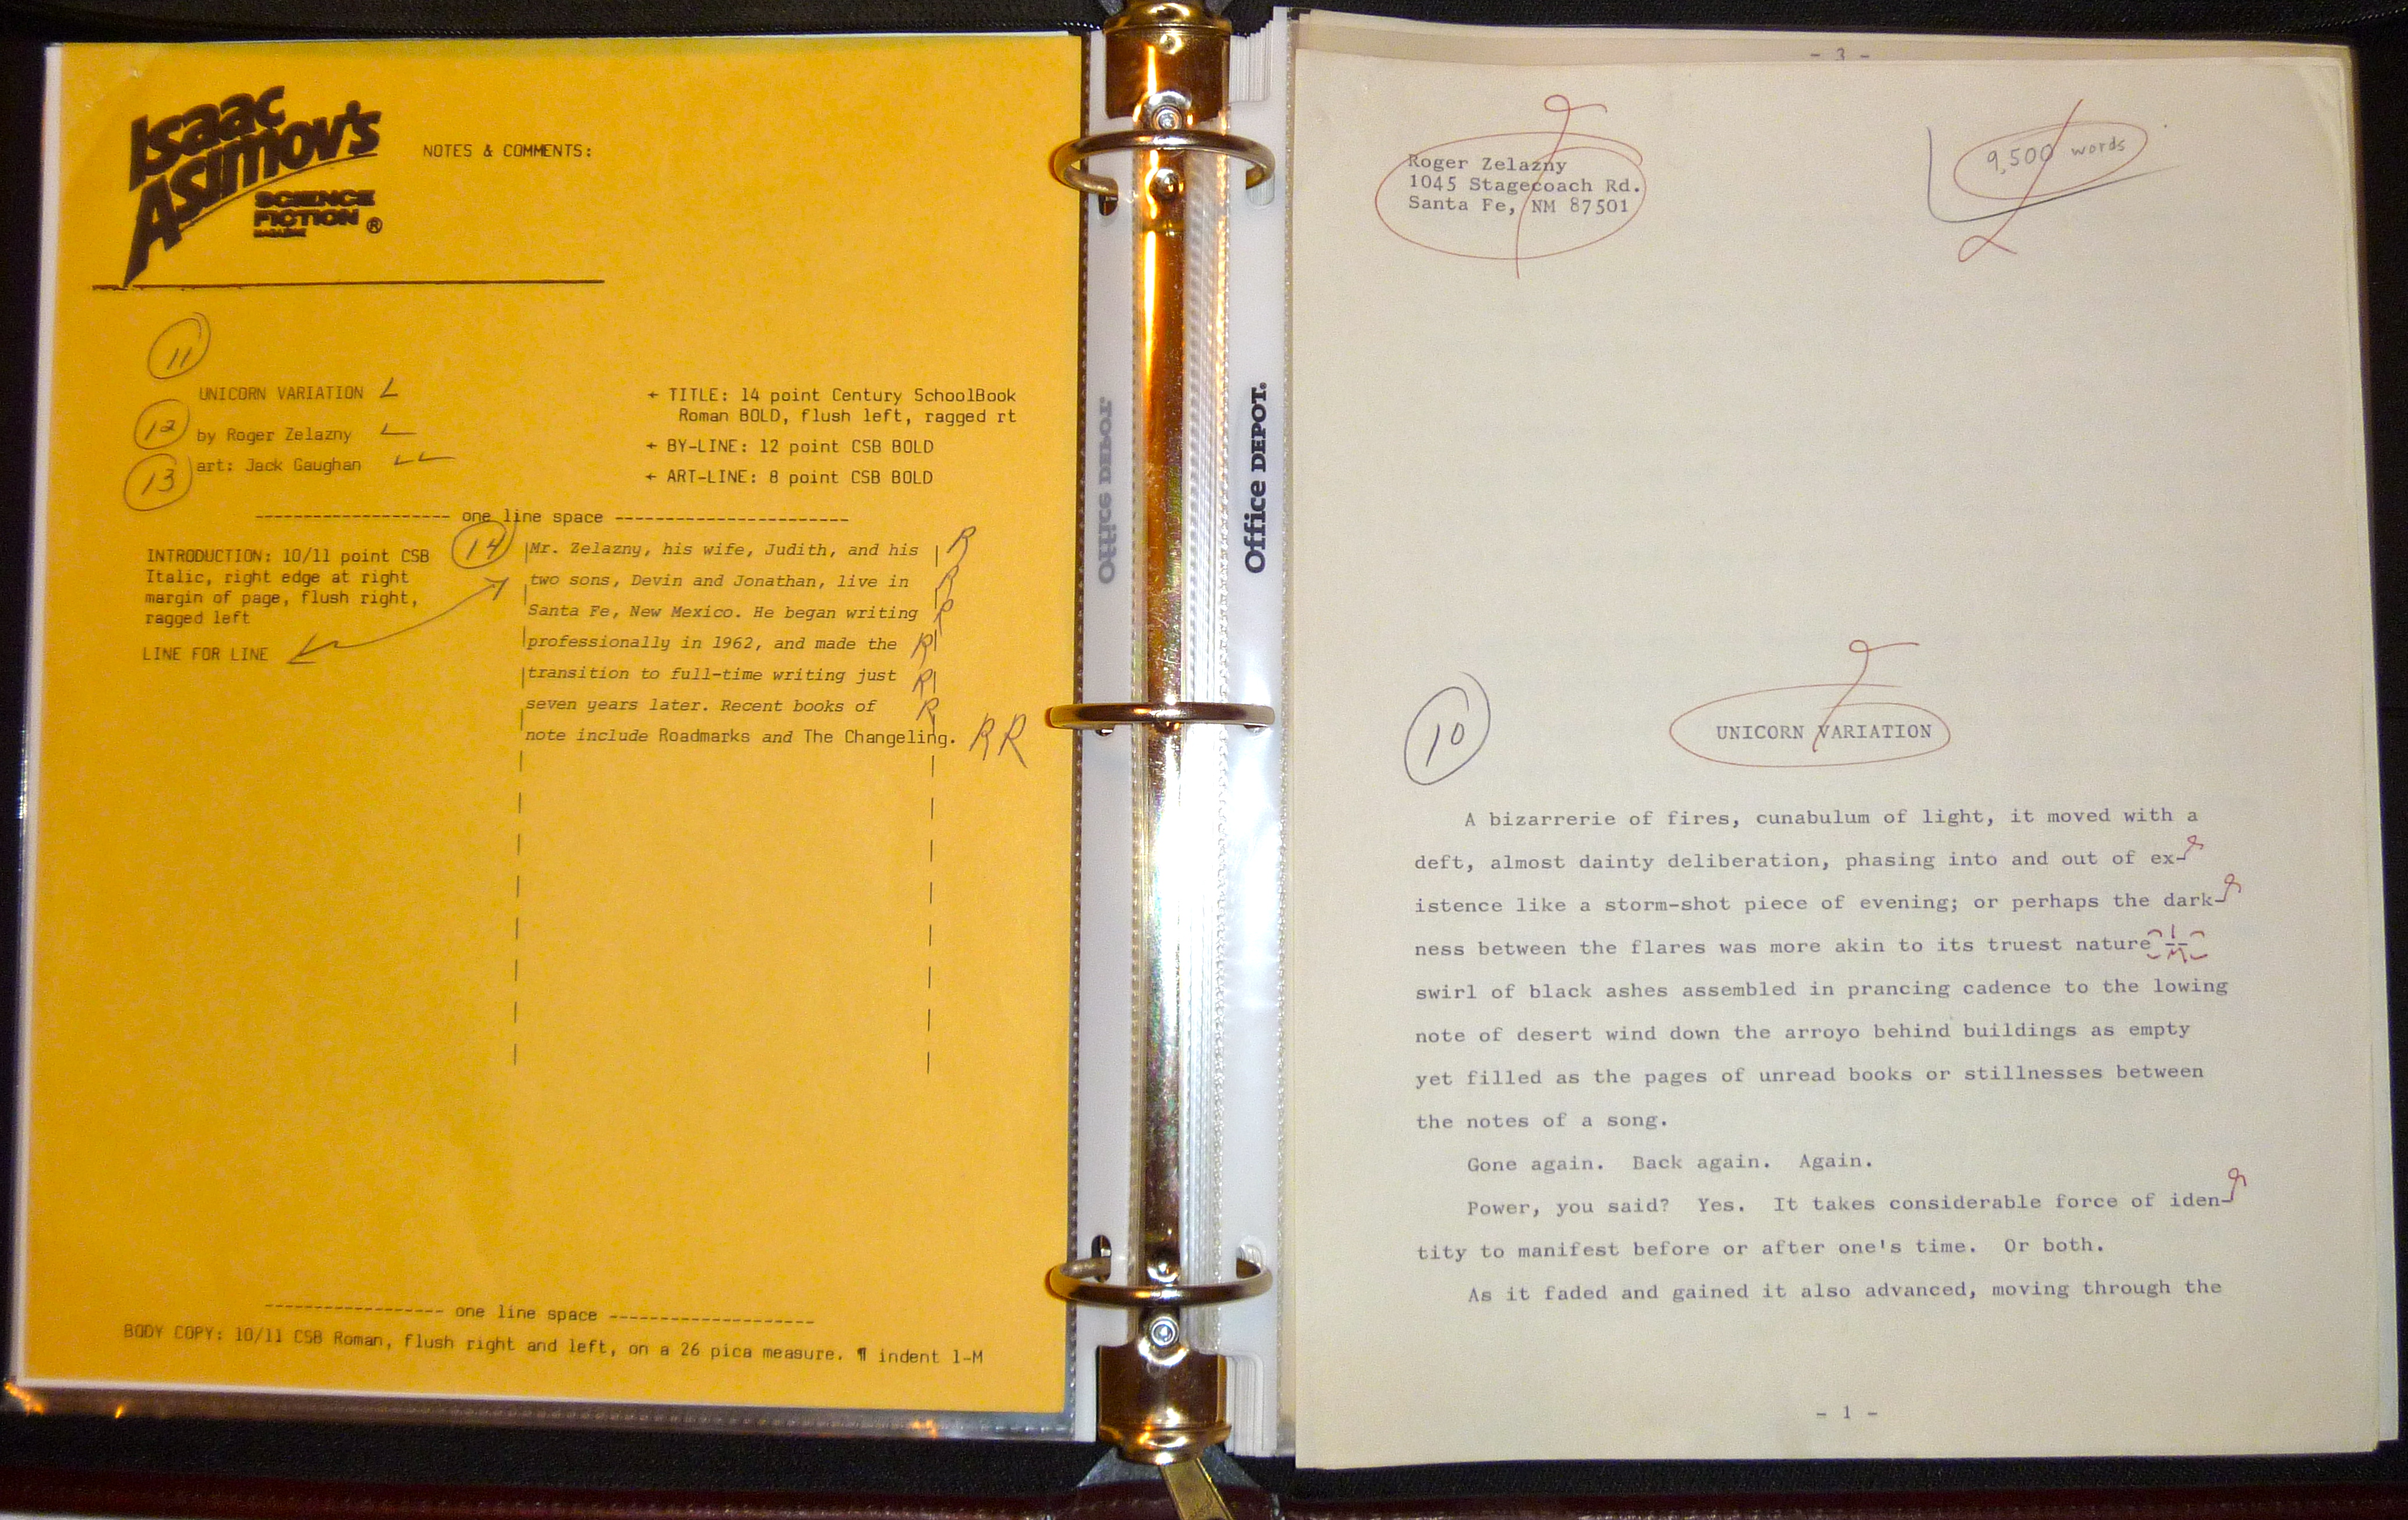 Isaac
Asimov's
SCIENCE
FICTION ®
MAGAZINE
NOTES & COMMENTS:
11
UNICORN VARIATION
12 by Roger Zelazny
13 art: Jack Gaughan
← TITLE: 14 point Century SchoolBook
Roman BOLD, flush left, ragged rt
← BY-LINE: 12 point CSB BOLD
← ART-LINE: 8 point CSB BOLD
------------------- one line space -----------------------
INTRODUCTION: 10/11 point CSB
Italic, right edge at right
margin of page, flush right,
ragged left
LINE FOR LINE
14 Mr. Zelazny, his wife, Judith, and his R
two sons, Devin and Jonathan, live in R
Santa Fe, New Mexico. He began writing R
professionally in 1962, and made the R
transition to full-time writing just R
seven years later. Recent books of R
note include Roadmarks and The Changeling. R R
------------------ one line space ---------------------
BODY COPY: 10/11 CSB Roman, flush right and left, on a 26 pica measure. ¶ indent 1-M
Office DEPOT.
Office DEPOT.
- 3 -
Roger Zelazny
1045 Stagecoach Rd.
Santa Fe, NM 87501
9,500 words
10
UNICORN VARIATION
A bizarrerie of fires, cunabulum of light, it moved with a
deft, almost dainty deliberation, phasing into and out of ex-
istence like a storm-shot piece of evening; or perhaps the dark-
ness between the flares was more akin to its truest nature --
swirl of black ashes assembled in prancing cadence to the lowing
note of desert wind down the arroyo behind buildings as empty
yet filled as the pages of unread books or stillnesses between
the notes of a song.
Gone again. Back again. Again.
Power, you said? Yes. It takes considerable force of iden-
tity to manifest before or after one's time. Or both.
As it faded and gained it also advanced, moving through the
- 1 -